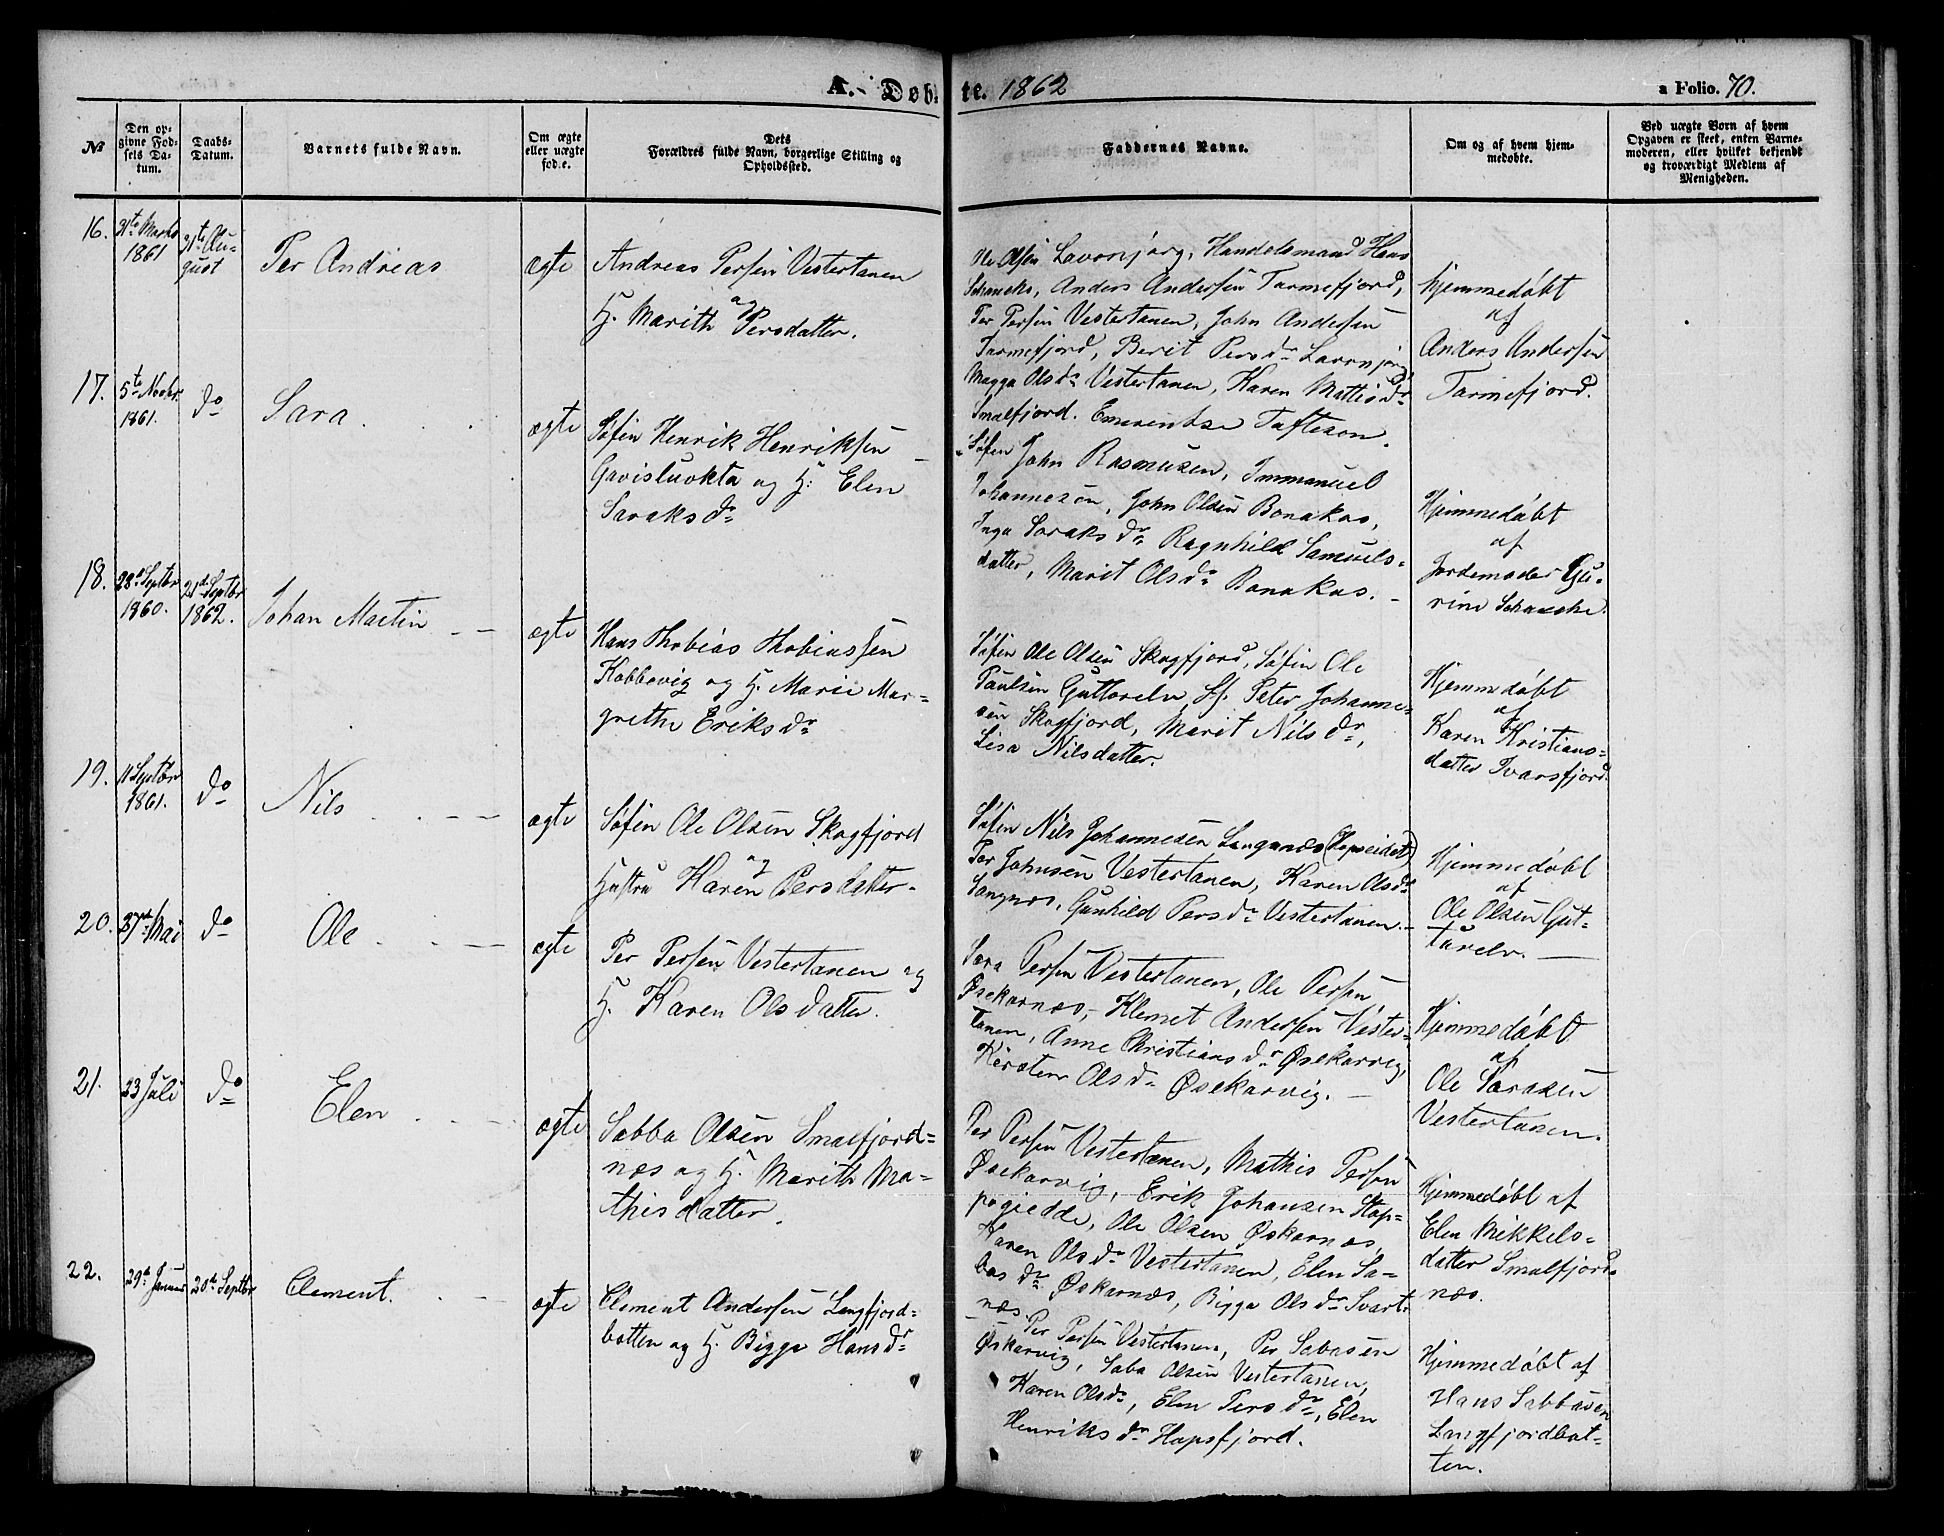 A. Døb- te. 1862
a Folio. 70.
No
Den op-
givne Fød-
sels Da-
tum.
Daabs-
Datum.
Barnets fulde Navn.
Om ægte
eller uægte
fød.e.
Dets
Forældres fulde Navn, borgerlige Stilling og
Opholdssted.
Faddernes Navne.
Om og af hvem hjem-
medøbte.
Ved uægte Børn af hvem
Opgaven er skeet, enten Barne-
moderen, eller hvilket bekjendt
og troværdigt Medlem af
Menigheden.
16.
1861
31te Au-
gust
Per Andreas
ægte
Andreas Persen Vestertanen
og
H. Marith Persdatter.
Ole Olsen Lavonjarg, Handelsmand Hans
Schancke, Anders Andersen Tarmefjord,
Per Persen Vestertanen, John Andersen
Tarmefjord, Berit Persdr Lavonjarg
Magga Olsdr Vestertanen, Karen Mattisdr
Smalfjord. Emerentse Tafteson.
Hjemmedøbt
af
Anders Andersen
Tarmefjord.
17.
5te Novbr.
1861.
do
Sara
ægte
Søfin Henrik Henriksen
Gavisluokta og H. Elen
Saraksdr
Søfin John Rasmusen, Immanuel
Johannesen, John Olsen Bonakas,
Inga Saraksdr Ragnhild Samuels-
datter, Marit Olsdr Bonakas.
Hjemmedøbt
af
Jordemoder Gu-
rine Schancke.
18.
28d Septbr
1860.
21d Septbr
1862.
Johan Martin
ægte
Hans Thobias Thobiassen
Kobbovig og H. Marie Mar-
grethe Eriksdr
Søfin Ole Olsen Skogfjord, Søfin Ole
Paulsen Guttorelv, Sf. Peter Johanne-
sen Skogfjord, Marit Nilsdr,
Lisa Nilsdatter.
Hjemmedøbt
af
Karen Kristians-
datter Ivarsfjord.
19.
11 Septbr
1861.
do
Nils
ægte
Søfin Ole Olsen Skogfjord
og
Hustru Karen Persdatter.
Søfin Nils Johannesen Langnæs (Hopseidet)
Per Johnsen Vestertanen, Karen Olsdr
Langnæs, Gunhild Persdr Vestertanen.
Hjemmedøbt
af
Ole Olsen Gut-
torelv.
20.
27de Mai
do
Ole
ægte
Per Persen Vestertanen og
H. Karen Olsdatter.
Sara Persen Vestertanen, Ole Persen,
Øsekarnæs, Klemet Andersen Vester-
tanen, Anne Christiansdr Øsekarvig,
Kirsten Olsdr Øsekarvig.
Hjemmedøbt
af
Ole Larssen
Vestertanen.
21.
23 Juli
do
Elen
ægte
Sabba Olsen Smalfjord-
næs og H. Marith Ma-
thisdatter.
Per Persen Vestertanen, Mathis Persen
Øsekarvig, Erik Johansen Hop-
pogiedde, Ole Olsen Øskarnæs,
Karen Olsdr Vestertanen, Elen Sa-
basdr Øskarnæs, Bigga Olsdr Svart-
næs.
Hjemmedøbt af
Elen Mikkels-
datter Smalfjord-
næs.
22.
29de Januar
20de Septbr
Clement.
ægte
Clement Andersen Langfjord-
botten og H. Bigga Hansdr
Per Persen Vestertanen, Per Sabasen
Øskarvig, Saba Olsen Vestertanen,
Karen Olsdr, Elen Persdr, Elen
Henriksdr Hopsfjord.
Hjemmedøbt af
Hans Sabbasen
Langfjordbot-
ten.